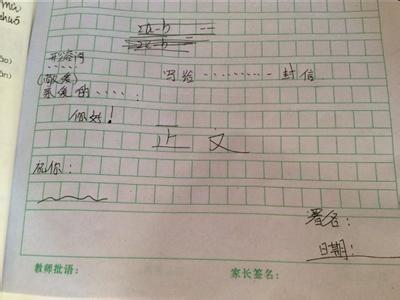 形容词
写给………… 封信
(敬爱)
亲爱的·····:
你好!
正文
祝你:
署名:
日期:
教师批语: 家长签名: